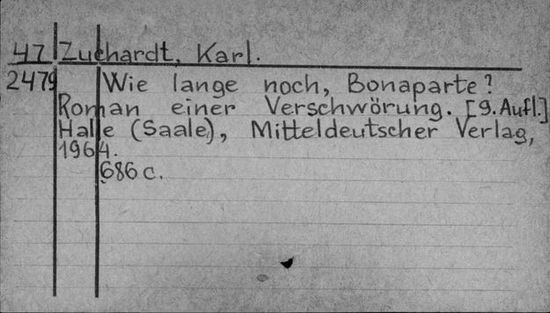 47 Zuchardt, Karl.
2479 Wie lange noch, Bonaparte?
Roman einer Verschwörung. [9. Aufl.]
Halle (Saale), Mitteldeutscher Verlag,
1964.
686 c.